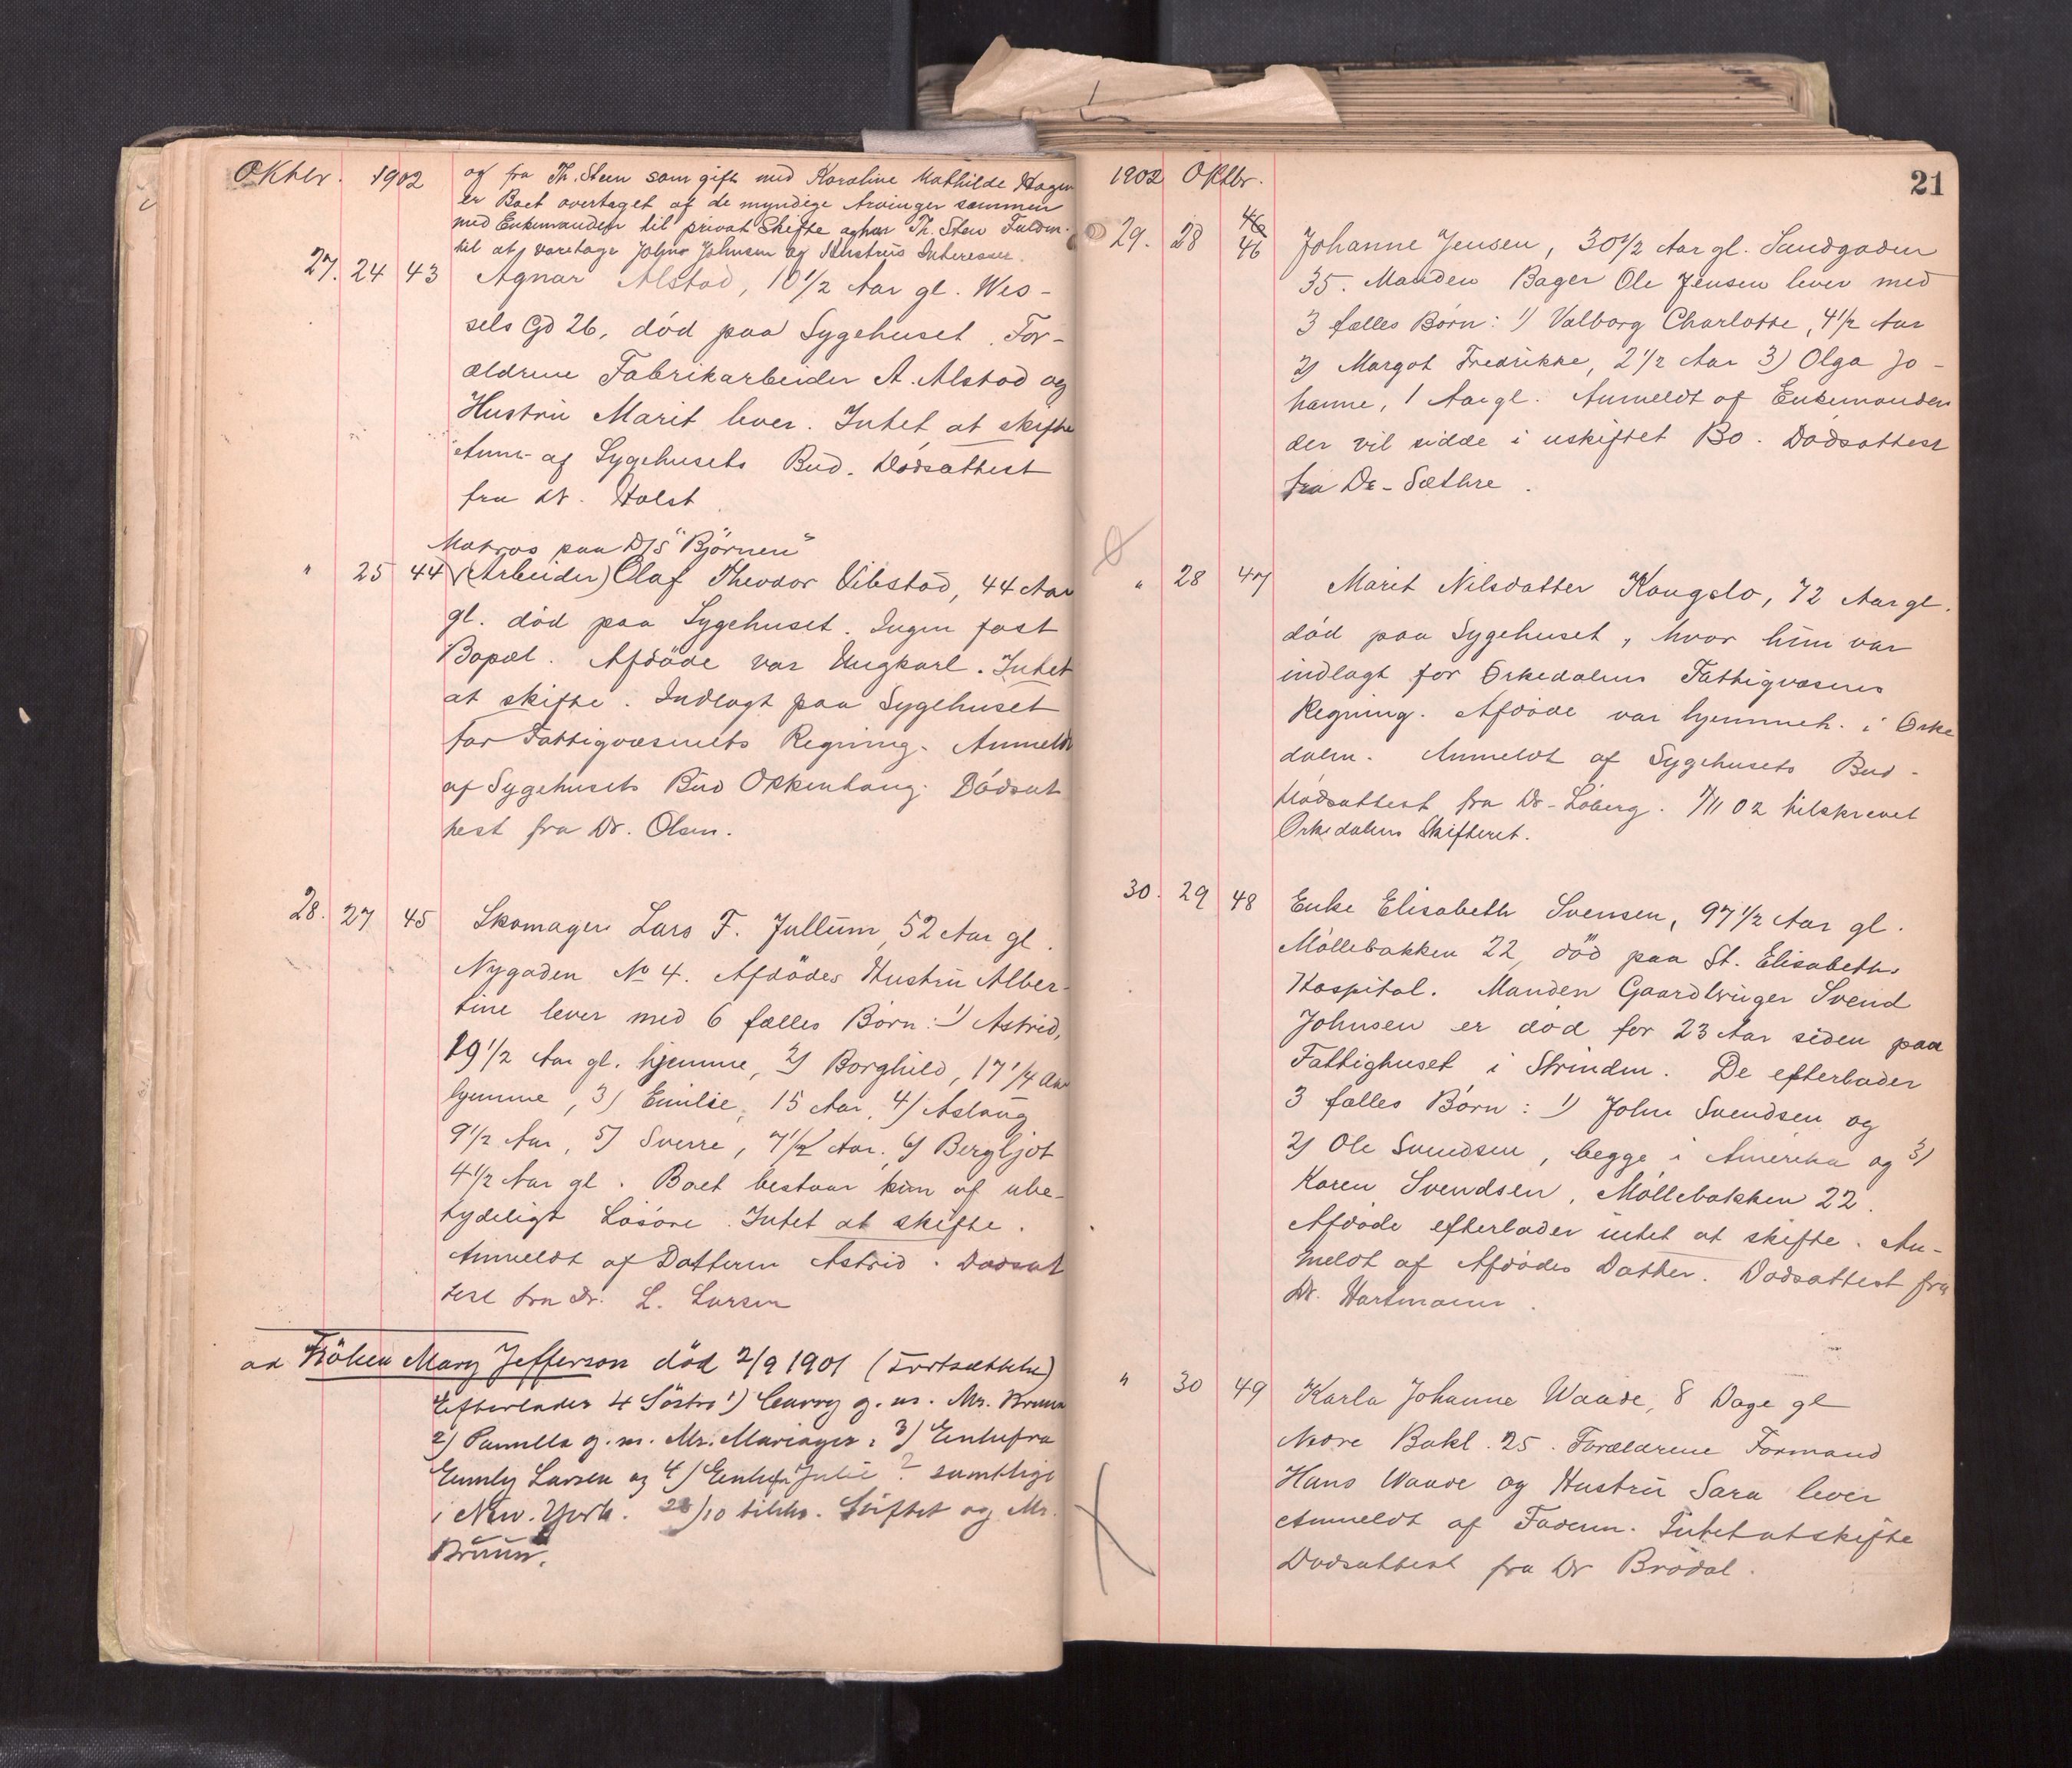 Oktbr. 1902
og fra Th. Steen som gift med Karoline Mathilde Hagen
er Boet overtaget af de myndige Arvinger sammen
med Enkemanden til privat Skifte og har Th. Steen Fuldm.
til at varetage Johns Johnsen og Hustrus Interesser.
27. 24 43 Agnar Alstad, 10 1/2 Aar gl. Wes-
sels Gd 26, död paa Sygehuset. For-
ældrene Fabrikarbeider A. Alstad og
Hustru Marit lever. Intet at skifte
Anm. af Sygehusets Bud. Dödsattest
fra Dr. Holst
Matros paa D/S "Björnen"
" 25 44 (Arbeider) Olaf Theodor Vibstad, 44 Aar
gl. död paa Sygehuset. Ingen fast
Bopæl. Afdöde var Ungkarl. Intet
at skifte. Indlagt paa Sygehuset
for Fattigvæsenets Regning. Anmeldt
af Sygehusets Bud Okkenhaug. Dödsat
test fra Dr. Olsen.
28. 27 45 Skomager Lars F. Jullum, 52 Aar gl.
Nygaden No 4. Afdödes Hustru Alber-
tine lever med 6 fælles Börn: 1) Astrid,
19 1/2 Aar gl. hjemme, 2) Borghild, 17 1/4 Aar
hjemme, 3) Emilie, 15 Aar, 4) Aslaug
9 1/2 Aar, 5) Sverre, 7 1/2 Aar. 6) Bergljot
4 1/2 Aar gl. Boet bestaar kun af ube-
tydeligt Lösöre. Intet at skifte.
Anmeldt af Datteren Astrid. Dödsat
test fra Dr. L. Larsen
ad Fröken Mary Jefferson död 2/9 1901 (Fortsættelse)
Efterlader 4 Söstre 1) Carry g. m. Mr. Bruun
2) Pamella g. m. Mr. Mariager, 3) Enkefru
Emmly Larsen og 4) Enkefr Julie ? samtlige
i New-York. 28/10 tilskr. Stiftet og Mr.
Bruun.
1902 Oktbr.
21
46
29. 28 46 Johanne Jensen, 30 1/2 Aar gl. Sandgaden
35. Manden Bager Ole Jensen lever med
3 fælles Börn: 1) Valborg Charlotte, 4 1/2 Aar
2) Margot Fredrikke, 2 1/2 Aar 3) Olga Jo-
hanne, 1 Aar gl. Anmeldt af Enkemanden
der vil sidde i uskiftet Bo. Dödsattest
fra Dr. Sæthre.
" 28 47 Marit Nilsdatter Kongslo, 72 Aar gl.
död paa Sygehuset, hvor hun var
indlagt for Orkedalens Fattigvæsens
Regning. Afdöde var hjemmeh. i Orke
dalen. Anmeldt af Sygehusets Bud.
Dödsattest fra Dr. Löberg. 7/11 02 tilskrevet
Orkedalens Skifteret.
30. 29 48 Enke Elisabeth Svensen, 97 1/2 Aar gl.
Möllebakken 22, död paa St. Elisabeths
Hospital. Manden Gaardbruger Svend
Johnsen er död for 23 Aar siden paa
Fattighuset i Strinden. De efterlader
3 fælles Börn: 1) John Svendsen og
2) Ole Svendsen, begge i Amerika og 3)
Karen Svendsen, Möllebakken 22.
Afdöde efterlader intet at skifte. An-
meldt af Afdödes Datter. Dödsattest fra
Dr. Hartmann.
" 30 49 Karla Johanne Waade, 8 Dage gl
Nedre Bakl. 25. Forældrene Formand
Hans Waade og Hustru Sara lever
Anmeldt af Faderen. Intet at skifte
Dödsattest fra Dr Brödal.